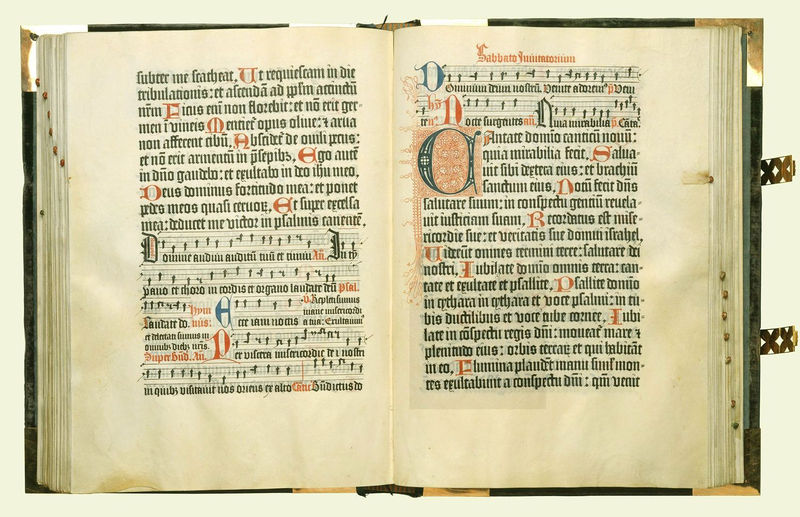 subter me scateat. Ut requiescam in die
tribulationis: et ascendā ad ppl̄m accinctū
nr̄m Ficus em̄ non florebit: et nō erit ger-
men ī vineis Mentiet᷑ opus oliue: ⁊ arua
non afferent cibū. Abscidet᷑ de ouili pecus:
et nō erit armentū in p̄sepibꝫ. Ego aut̄
in dn̄o gaudebo: et exultabo in deo ihu meo.
Deus dominus fortitudo mea: et ponet
pedes meos quasi ceruoꝝ. Et super excelsa
mea: deducet me victor in psalmis canentē.
Domine audiui auditū tuū et timui An̄. In ty
pano et choro in cordis et organo laudate deū Psal.
hym
Laudate do. nus:
Ecce iam noctis
v̄. Repleti sumus
mane misericordi
a tua: Exultauim᷒
et delectati sumus in
omnibꝫ diebꝫ nr̄is.
Super Bn̄d. An̄.
Per viscera misericordie dei nostri
in quibꝫ visitauit nos oriens ex alto Cātic̄ Bn̄dictus do
Sabbato Inuitatorium
Dominum deum nostrū. Venite adorem᷒ p̄ Veni
hȳ
te n᷑:
Nocte surgentes an̄.
Quia mirabilia p̄. Cāta.
CAntate domīo canticū nouū:
quia mirabilia fecit. Salua-
uit sibi dextera eius: et brachiū
sanctum eius. Notū fecit dn̄s
salutare suum: in conspectu gentiū reuela-
uit iusticiam suam. Recordatus est mise-
ricordie sue: et veritatis sue domui israhel.
Uiderūt omnes termini terre: salutare dei
nostri. Iubilate domīo omnis terra: can-
tate et exultate et psallite. Psallite domīo
in cythara in cythara et voce psalmi: in tu-
bis ductilibus et voce tube cornee. Iubi-
late in cōspectu regis dn̄i: moueat᷑ mare ⁊
plenitudo eius: orbis terraꝝ et qui habitāt
in eo. Flumina plaudēt manu simul mon-
tes exultabunt a conspectu dn̄i: qm̄ venit